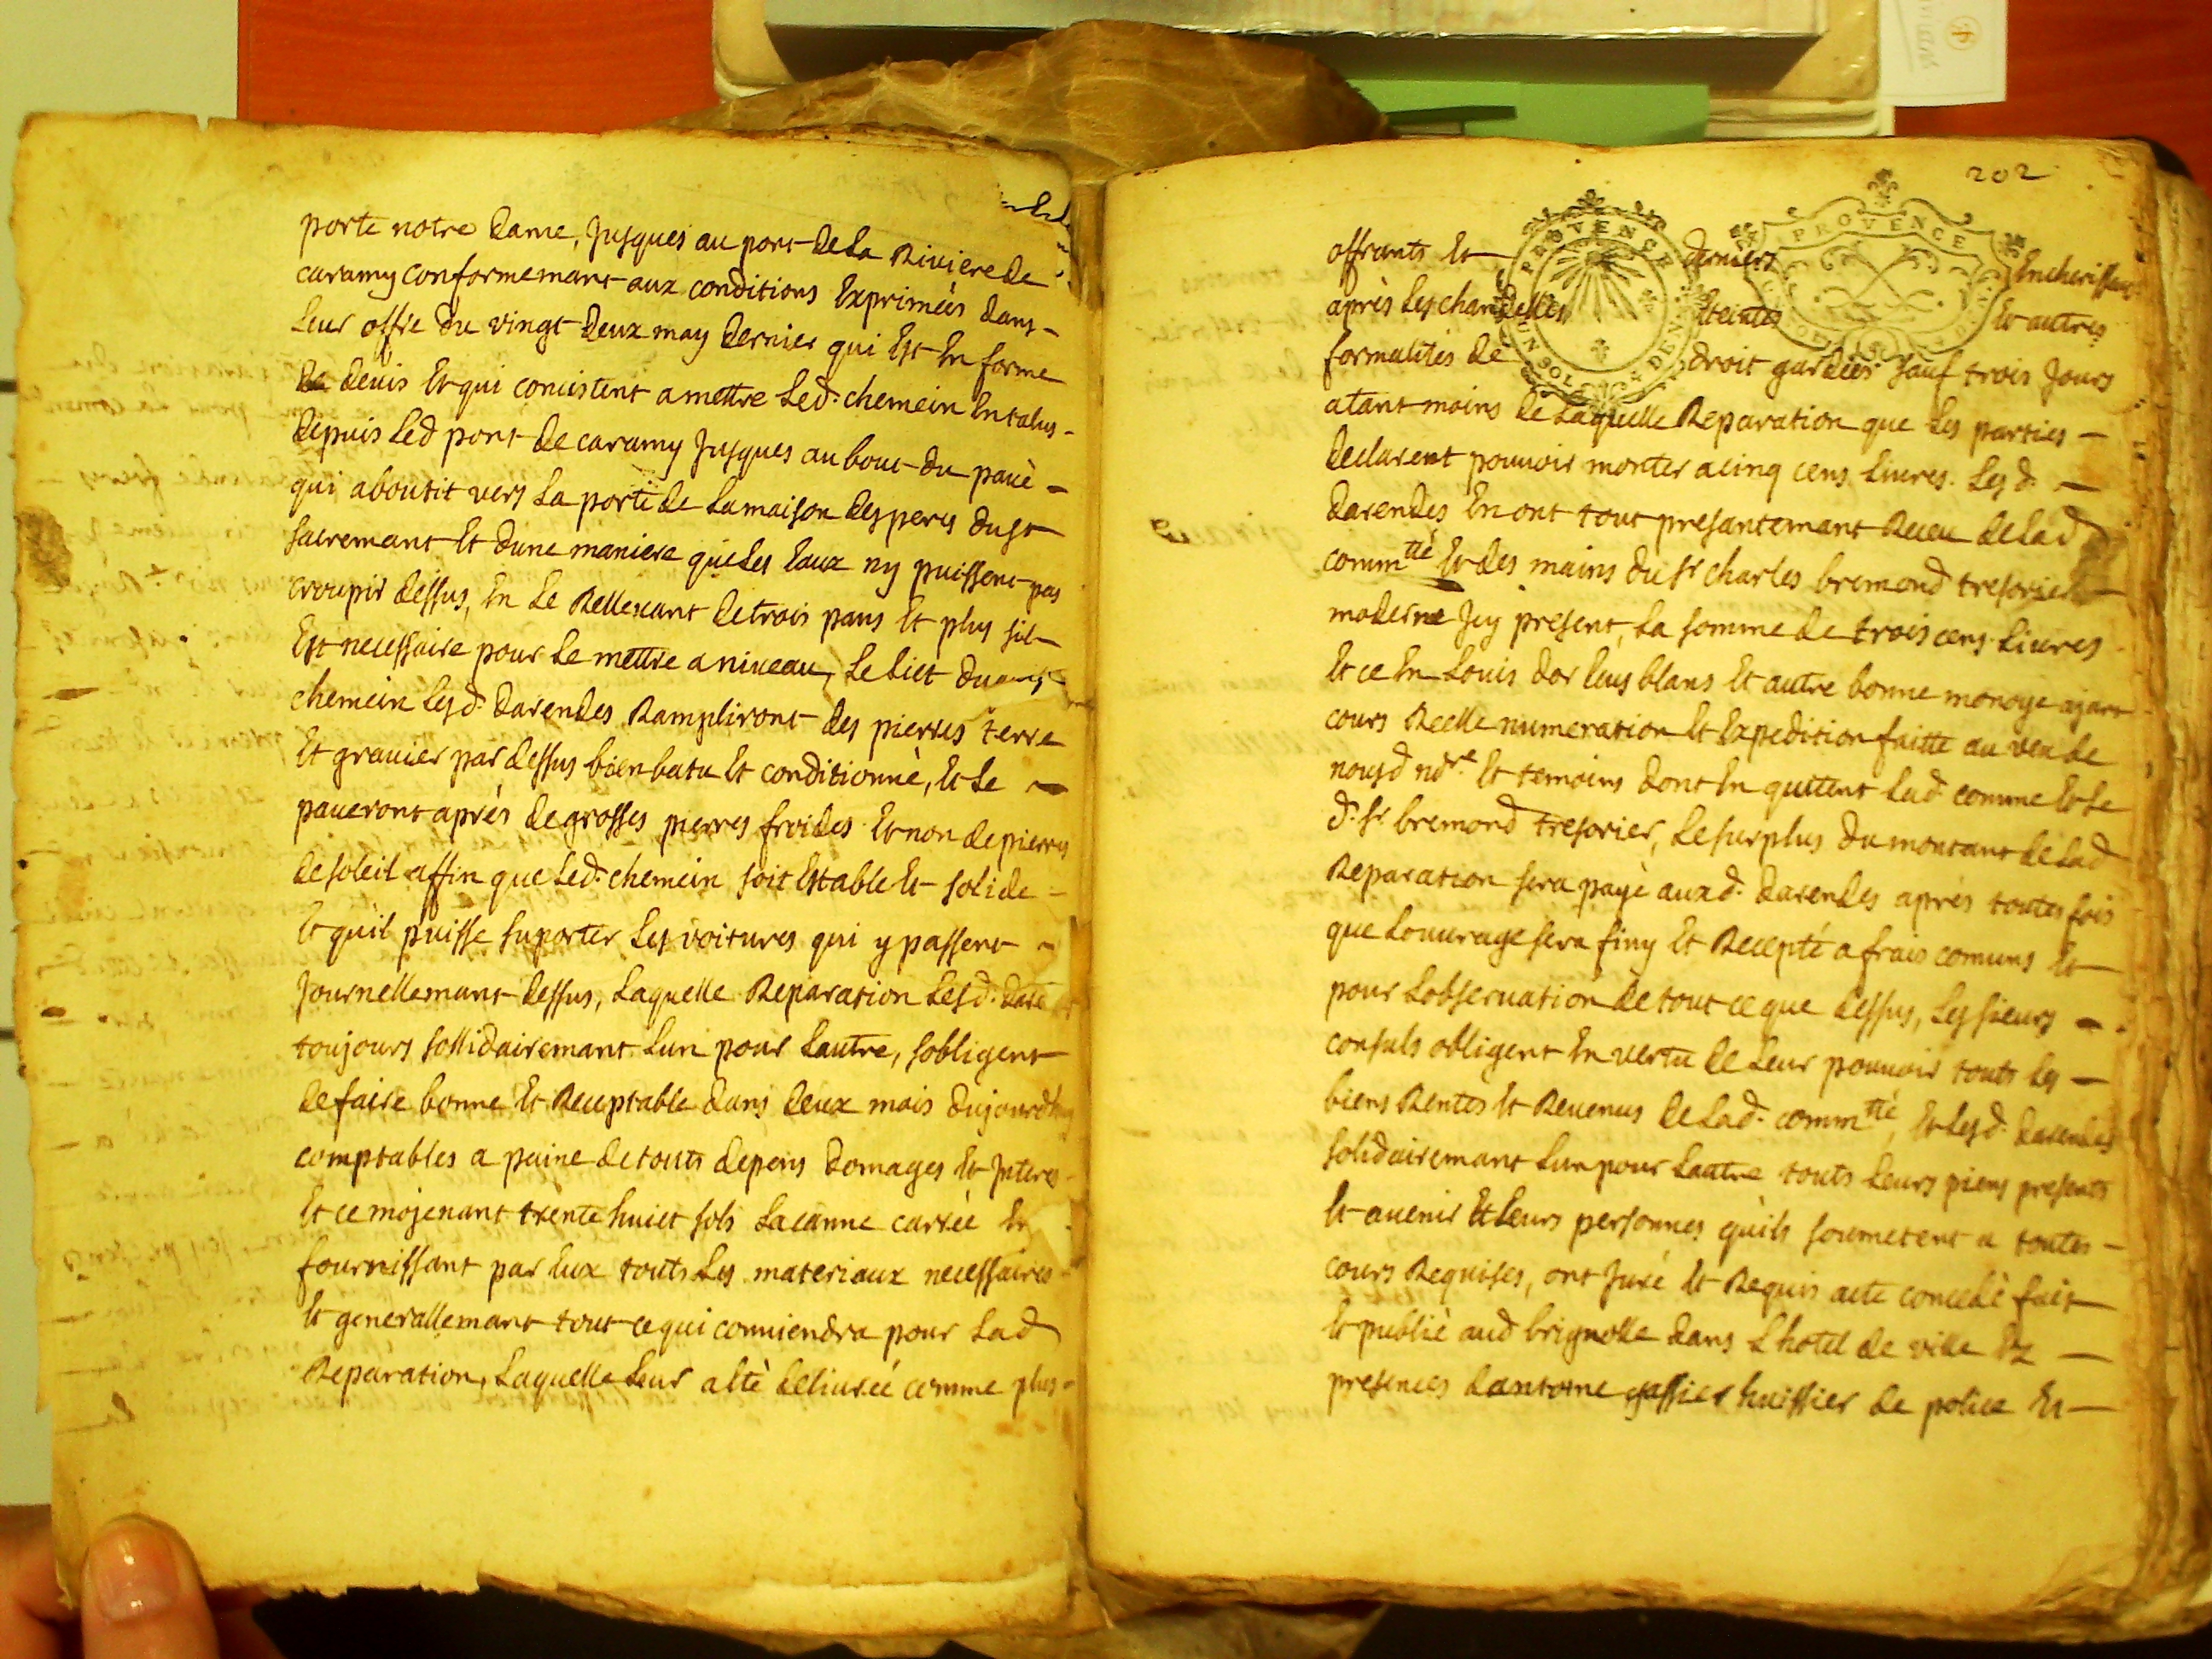 porte notre dame, Jusques au pont de La Riviere de
caramy conformemant aux conditions Exprimées dans
Leur offre du vingt deux may dernier qui Est En forme
de devis Et qui concistent a mettre Led. chemein En talus
depuis Led pont de caramy Jusques au bout du pavè
qui aboutit vers La porte de La maison des peres du st
sacremant Et dune maniere que Les Eaux ny puissent pas
croupir dessus, En Le Rellevant de trois pans Et plus sil
Est necessaire pour Le mettre a niveau, Le Lict du
chemein Lesd. darendes Rampliront des pierres terre
Et gravier par dessus bien batu Et conditionnè, Et Le
paveront aprés de grosses pierres froides Et non de pierres
de soleil affin que Led. chemein soit Estable Et solide
Et qu'il puisse suporter Les voitures qui y passent
Journellemant dessus, Laquelle Reparation Lesd.
toujours sollidairemant Lun pour Lautre, sobligent
de faire bonne Et Receptable dans deux mois dujourdhuy
comptables a paine de touts depens domages Et Interes
Et ce mojenant trente huict sols La canne carrée En
fournissant par Eux touts Les materiaux necessaires
Et generallemant tout ce qui conviendra pour Lad
Reparation, Laquelle Leur a Etè delivrée comme plus
202
PROVENCE
PROVENCE
offrants Et derniers Encherisseurs
après Les chandelles Eteintes Et autres
formalités de droit gardées sauf trois Jours
a tant moins de Laquelle Reparation que Les parties
declarent pouvoir monter a cinq cens Livres. Lesd.
darendes En ont tout presantemant Receu de Lad
commtté Et des mains du sr charles bremond tresorier
moderne Icy present, La somme de trois cens Livres
Et ce En Louis dor Ecus blans Et autre bonne monoye ajant
cours Reelle numeration Et Expedition faitte au veu de
nousd ndre Et temoins dont En quittent Lad. comme Et Le
d. sr. bremond tresorier, Le surplus du montant de Lad
Reparation sera payè auxd. darendes aprés toutes fois
que Louvrage sera finy Et Recepté a frais comuns Et
pour Lobservation de tout ce que dessus, Les sieurs
consuls obligent En vertu de Leur pouvoir touts Les
biens Rentes Et Revenus de Lad. commtté, Et Lesd. darendes
solidairemant Lun pour Lautre touts Leurs piens presents
Et avenir Et Leurs personnes qu'ils soumetent a toutes
cours Requises, ont Juré Et Requis acte concedè fait
Et publiè aud brignolle dans L'hotel de ville Ez
presences dantoine gassier huissier de police Et